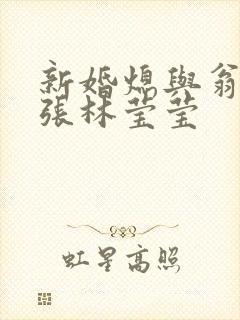 新婚熄與翁
張林莹莹
虹星高照